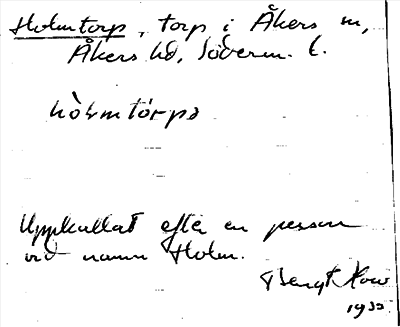 Holmtorp, torp i Åkers sn,
Åkers hd, Söderm. l.
hòlmtórpə
Uppkallat efter en person
vid namn Holm.
Bengt
193